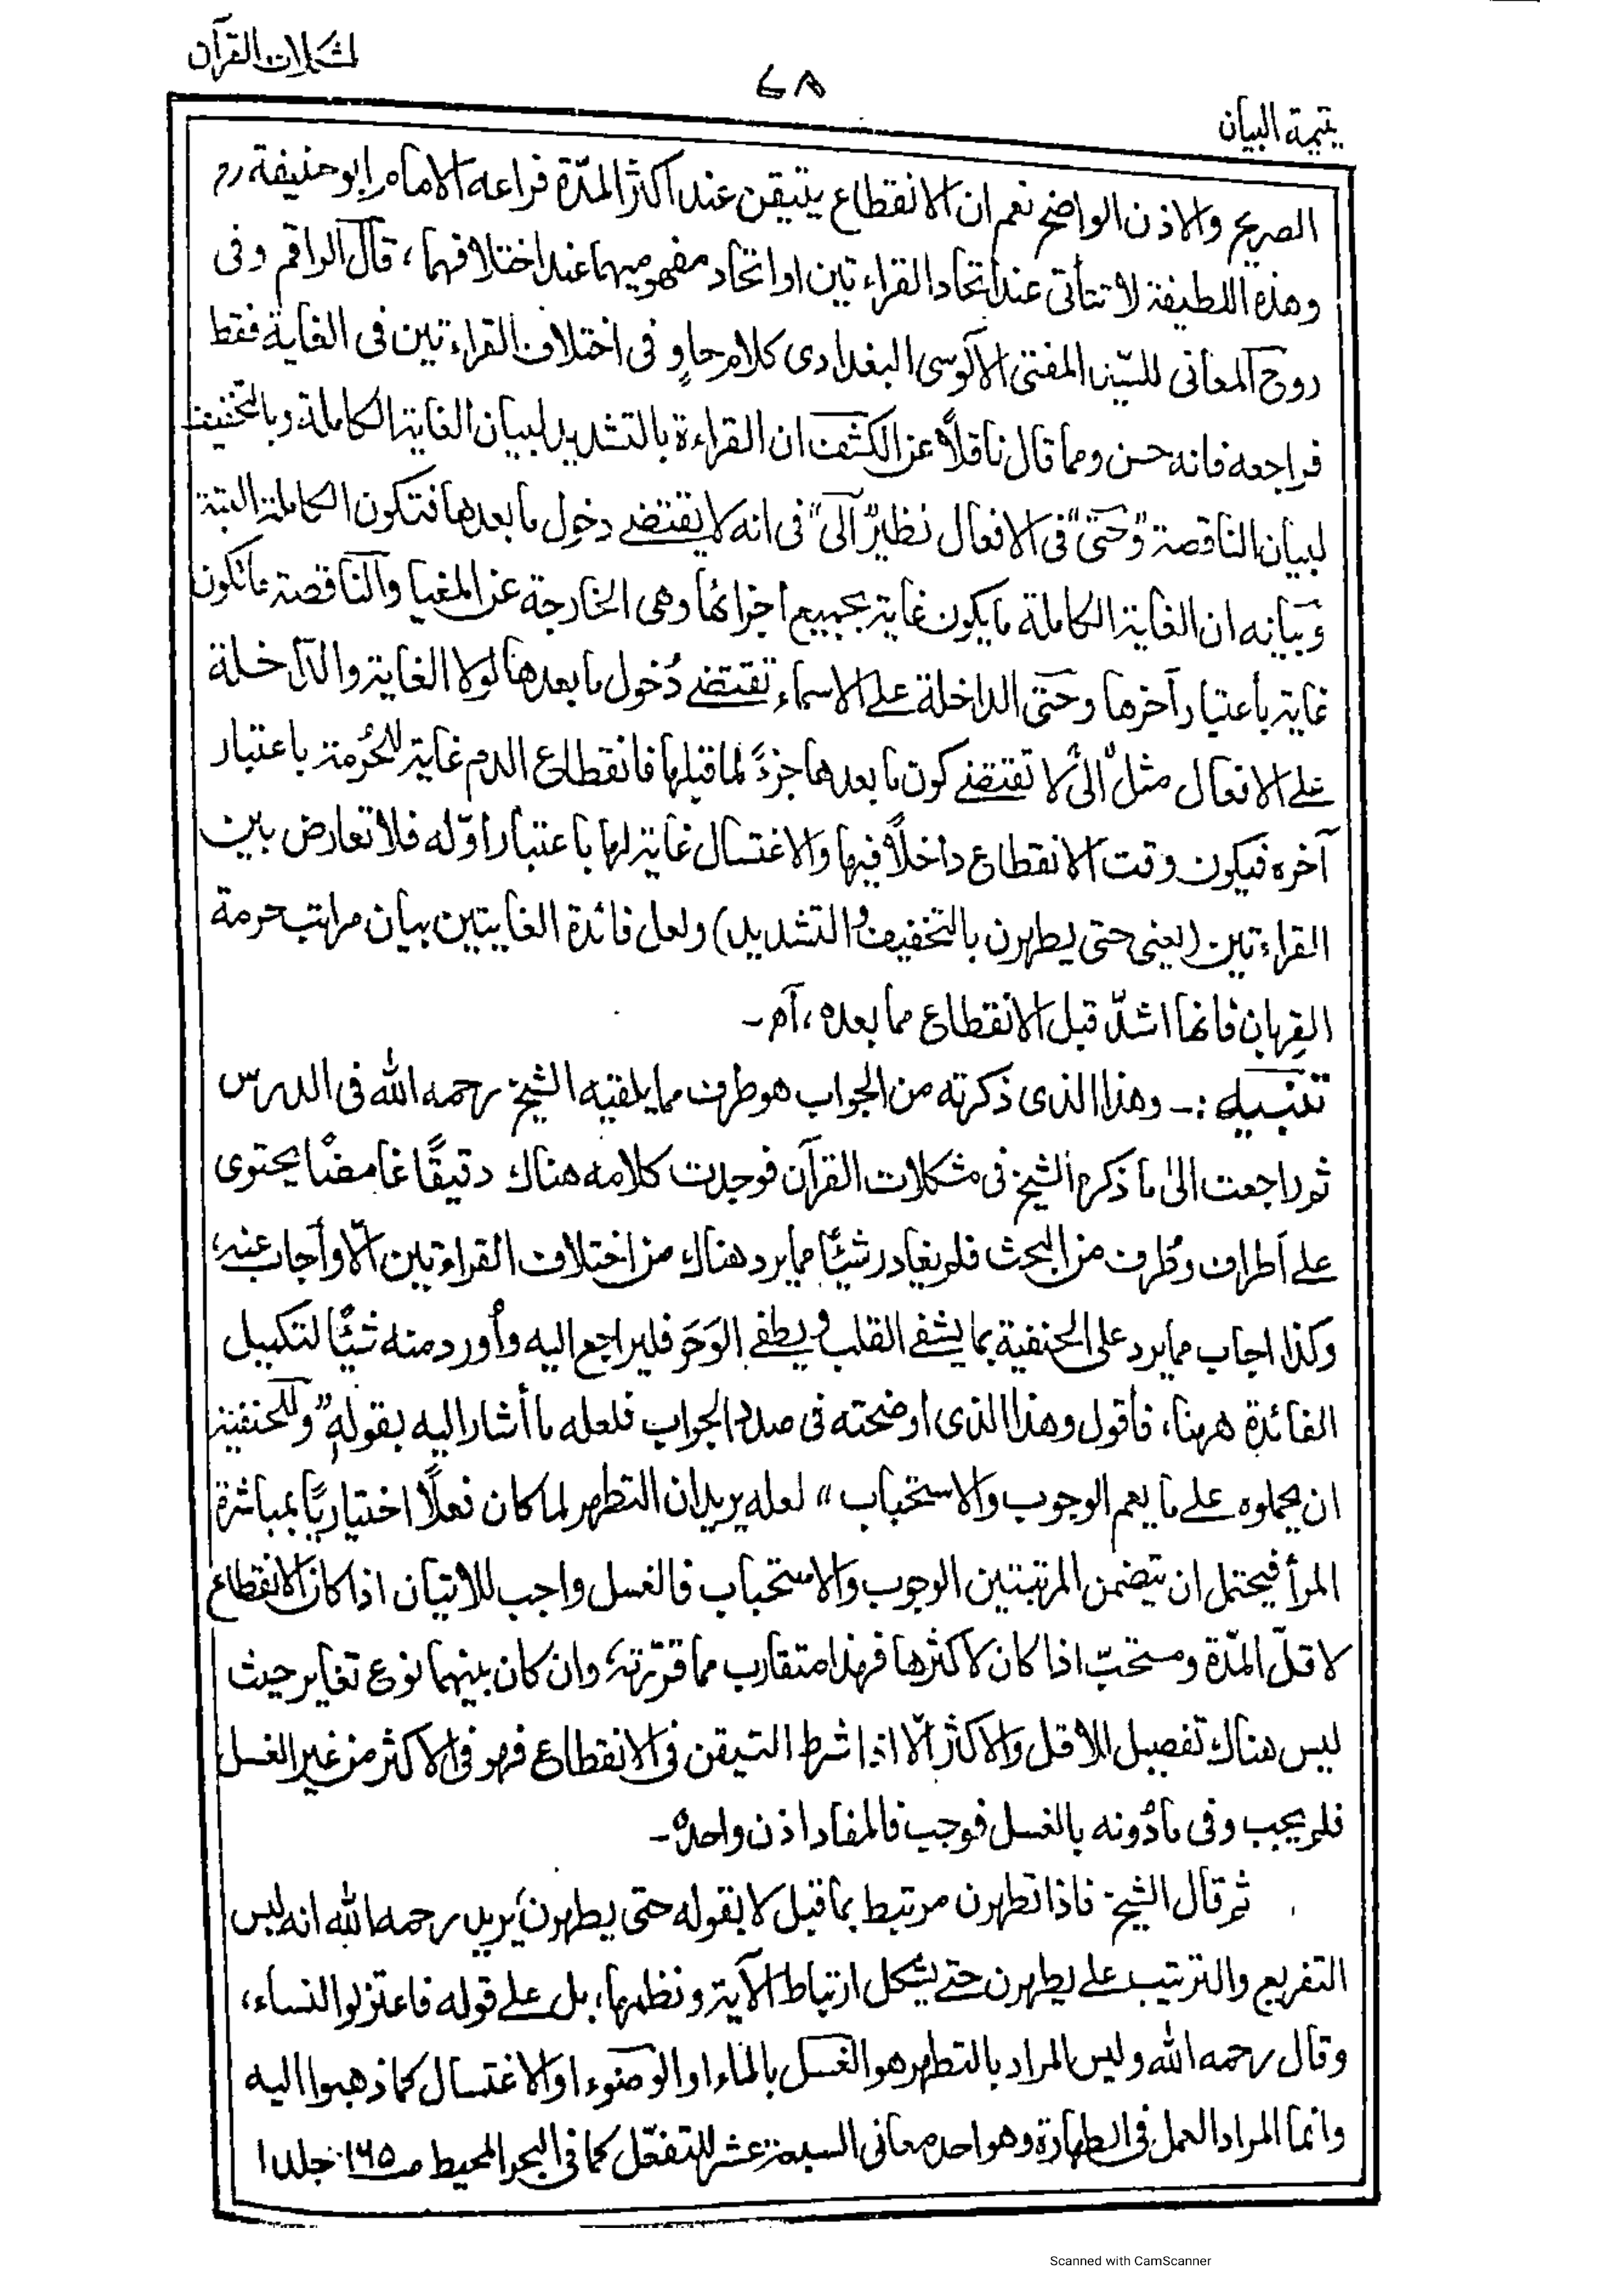 لمشكلات القرآن
٧٨
يتيمة البيان
الصريح والاذن الواضح نعم ان الانقطاع يتيقن عند اكثر المدّة فراعه الامام ابو حنيفة رح
وهذه اللطيفة لا تتأتى عند اتحاد القراءتين او اتحاد مفهوميهما عند اختلافهما، قال الراقم وفى
روح المعانى للسيّد المفتى الآلوسى البغدادى كلام حاوٍ فى اختلاف القراءتين فى الغاية فقط
فراجعه فانه حسن ومما قال ناقلاً عن الكشف ان القراءة بالتشديد لبيان الغاية الكاملة وبالتخفيف
لبيان الناقصة "وحتى" فى الافعال نظير "الى" فى انه لا يقتضے دخول ما بعدها فتكون الكاملة البتة
وبيانه ان الغاية الكاملة ما يكون غاية بجميع اجزائها وهى الخارجة عن المغيا والناقصة ما تكون
غاية بأعتبار آخرها وحتى الداخلة علے الاسماء تقتضے دُخول ما بعدها لولا الغاية والداخلة
علے الافعال مثل "الى" لا تقتضے كون ما بعدها جزءً لما قبلها فانقطاع الدم غاية للحُرمة باعتبار
آخره فيكون وقت الانقطاع داخلاً فيها والاغتسال غاية لها باعتبار اوّله فلا تعارض بين
القراءتين (يعنى حتى يطهرن بالتخفيف والتشديد) ولعل فائدة الغايتين بيان مراتب حرمة
القِربان فانها اشدّ قبل الانقطاع مما بعده، آه ـ
تنبيه :ـ وهذا الذى ذكرته من الجواب هو طرف مما يلقيه الشيخ رحمه الله فى الدرس
ثم راجعت الىٰ ما ذكره الشيخ فى مشكلات القرآن فوجدت كلامه هناك دقيقًا غامضًا يحتوى
علے أطراف وطُرف من البحث فلم يغادر شيئًا مما يرد هناك من اختلاف القراءتين الّا وأجاب عنه،
وكذا اجاب مما يرد على الحنفية بما يشفے القلب ويطفے الوَحَر فليراجع اليه وأُورد منه شيئًا لتكميل
الفائدة ههنا، فأقول وهذا الذى اوضحته فى صدد الجواب فلعله ما أشار اليه بقولهٖ "وللحنفية
ان يحملوه علے ما يعم الوجوب والاستحباب" لعله يريد ان التطهر لما كان فعلًا اختياريًّا بمباشرة
المرأ فيحتمل ان يتضمن المرتبتين الوجوب والاستحباب فالغسل واجب للاتيان اذا كان الانقطاع
لاقلّ المدّة ومستحبّ اذا كان لاكثرها فهذا متقارب مما قرّرته، وان كان بينهما نوع تغاير حيث
ليس هناك تفصيل الاقل والاكثر الّا اذا شرط التيقن فى الانقطاع فهو فى الاكثر من غير الغسل
فلم يجب وفى ما دُونه بالغسل فوجب فالمفاد اذن واحد ـ
ثم قال الشيخ فاذا تطهرن مرتبط بما قبل لا بقوله حتى يطهرن، يريد رحمه الله انه ليس
التفريع والترتيب علے يطهرن حتے يشكل ارتباط الآية ونظمها، بل علے قوله فاعتزلوا النساء،
وقال رحمه الله وليس المراد بالتطهر هو الغسل بالماء او الوضوء او الاغتسال كما ذهبوا اليه
وانما المراد العمل فى الطهارة وهو احد معانى السبعة عشر للتفعّل كما فى البحر المحيط صـ١٦٥ جلد ١
Scanned with CamScanner